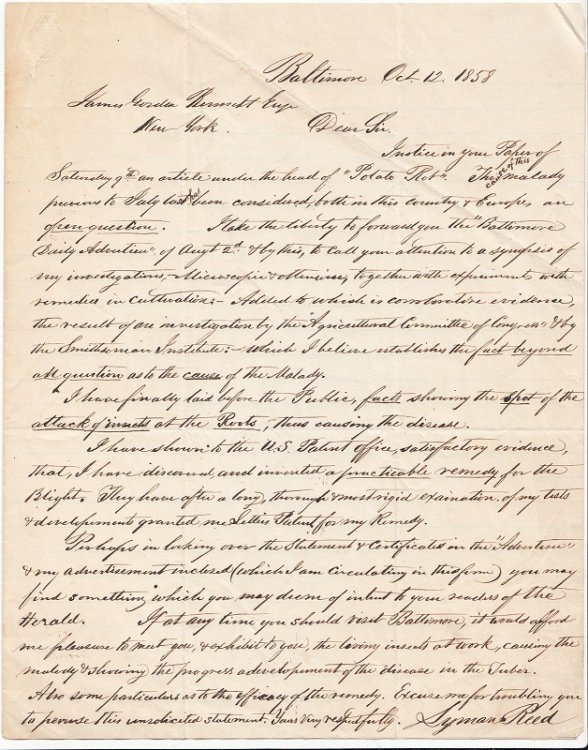 Baltimore Oct. 12 1858
James Gordon Bennett Esqr
New York. Dear Sir.
I notice in your Paper of
Saturday 9th an article under the head of "Potato Rot". The cause of this malady
previous to July last had been considered, both in this country & Europe, an
open question. I take the liberty to forward you the "Baltimore
Daily Advertiser" of Augt 2d. & by this, to call your attention to a synopsis of
my investigations,—Microscopic & otherwise, together with experiments with
remedies in cultivation;— Added to which is corroborative evidence,
the result of an investigation by the "Agricultural Committee of Congress" & by
the Smithsonian Institute:— which I believe establishes the fact beyond
all question as to the cause of the Malady.
I have finally laid before the Public, facts showing the spot of the
attack of insects at the Roots, thus causing the disease.
I have shown to the U.S. Patent office, satisfactory evidence,
that, I have discovered, and invented a practicable remedy for the
Blight. They have after a long, thorough & most rigid exaination of my tests
& developements granted me Letters Patent, for my Remedy.
Perhaps in looking over the Statement & Certificates in the "Advertiser"
& my advertisement inclosed (which I am circulating in this form) you may
find something which you may deem of intent to your readers of the
Herald. If at any time you should visit Baltimore, it would afford
me pleasure to meet you, & exhibit to you, the living insects at work, causing the
malady & showing the progress & developement of the disease in the Tuber.
Also some particulars as to the efficacy of the remedy. Excuse me for troubling you
to peruse this unsolicited statement. Yours very respectfully. Lyman Reed